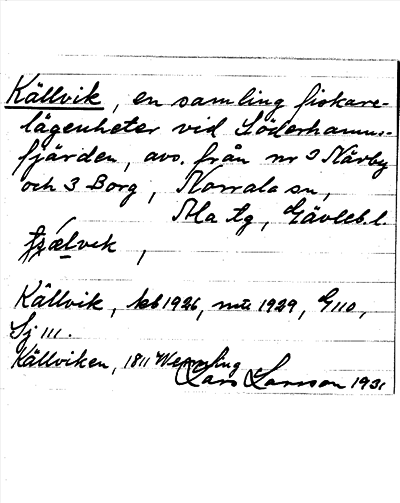 Källvik, en samling fiskare-
lägenheter vid Söderhamns-
fjärden, avs. från nr 2 Närby
och 3 Borg, Norrala sn,
Ala tg, Gävleb. l.
Källvik, kb 1926, 1929, G 110,
Sj 111.
Källviken, 1811 Wennling
Lars Larsson 1931